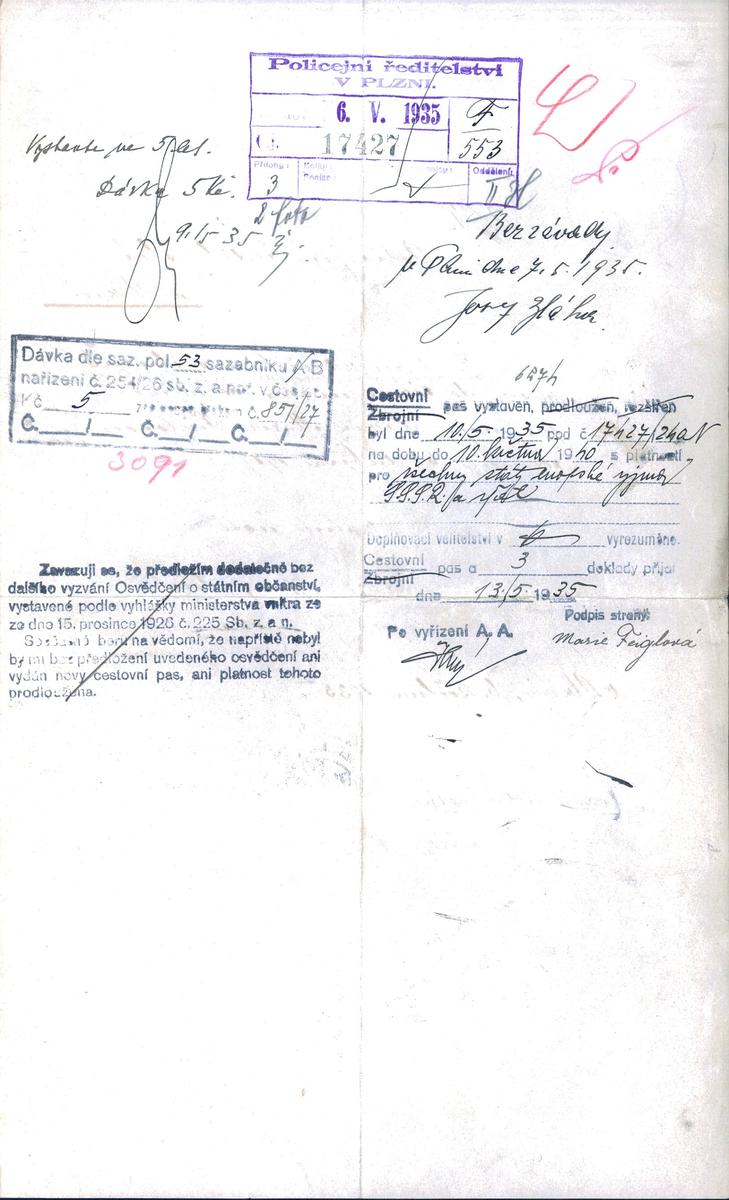 Policejní ředitelství
V PLZNI.
6. V. 1935
F
Čj. 17427
553
Přílohy:
Kolky:
Oddělení:
3
II
Vystavte na 5 let.
Dávka 5 Kč.
2 foto
9./5 35
Bez závady.
v Plzni dne 7.5.1935.
Dávka dle saz. pol. 53 sazebníku A B
nařízení č. 254/26 sb. z. a nař. v č
Kč 5 č. 85/27
Č. / Č. / Č. /
3091
Cestovní pas vystaven, prodloužen, rozšířen
Zbrojní
byl dne 10./5 1935 pod č 17427/24aN
na dobu do 10. května 1940 s platností
pro všechny státy evropské vyjma
S.S.S.R.
Doplňovací velitelství v vyrozuměno.
Cestovní pas a 3 doklady přijal
Zbrojní
dne 13./5 1935
Podpis strany:
Po vyřízení A. A.
Marie Feiglová
Zavazuji se, že předložím dodatečně bez
dalšího vyzvání Osvědčení o státním občanství,
vystavené podle vyhlášky ministerstva vnitra ze
ze dne 15. prosince 1926 č. 225 Sb. z. a n.
Současně beru na vědomí, že napříště nebyl
by mi bez předložení uvedeného osvědčení ani
vydán nový cestovní pas, ani platnost tohoto
prodloužena.